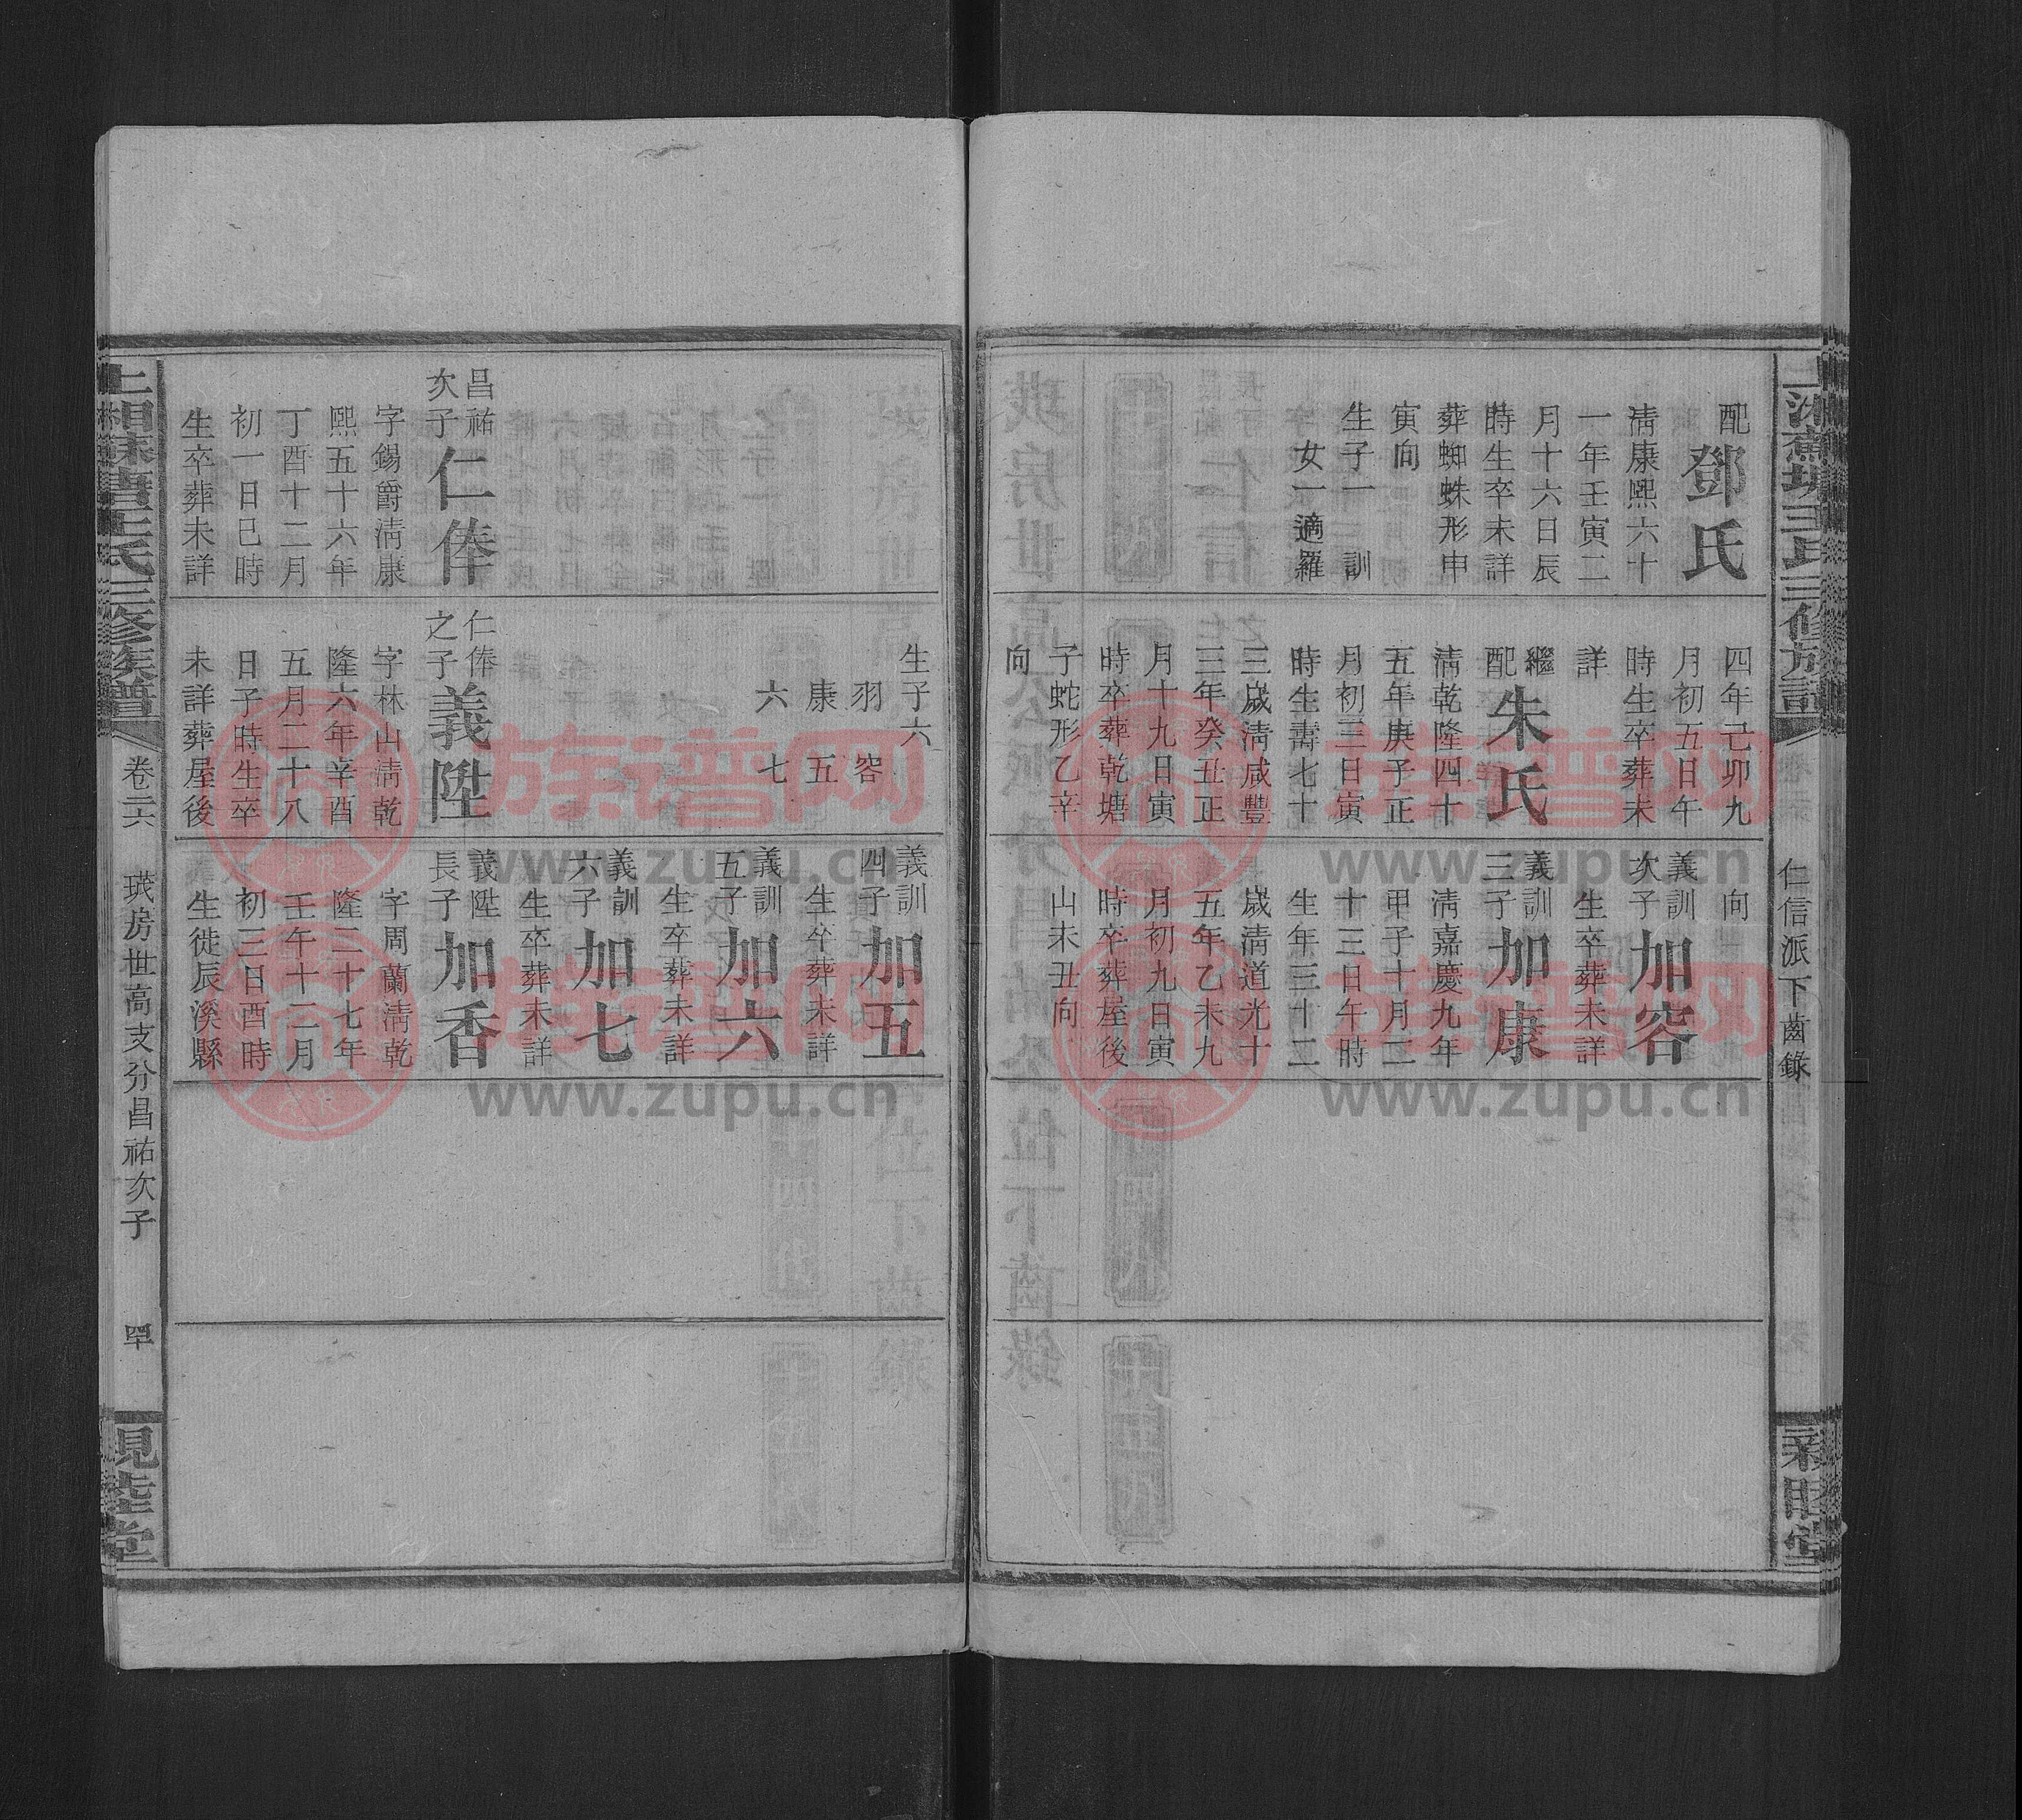 配鄧氏
清康熙六十
一年壬寅二
月十六日辰
時生卒未詳
葬蜘蛛形申
寅向
生子一 訓
女一適羅
四年己卯九
月初五日午
時生卒葬未
詳
繼配朱氏
清乾隆四十
五年庚子正
月初三日寅
時生壽七十
三歲清咸豐
三年癸丑正
月十九日寅
時卒葬乾塘
子蛇形乙辛
向
向
義訓次子加容
生卒葬未詳
義訓三子加康
清嘉慶九年
甲子十月二
十三日午時
生年三十二
歲清道光十
五年乙未九
月初九日寅
時卒葬屋後
山未丑向
仁信派下齒錄
昌祐次子仁俸
字錫爵清康
熙五十六年
丁酉十二月
初一日巳時
生卒葬未詳
生子六
羽 容
康 五
六 七
仁俸之子義陞
字林山清乾
隆六年辛酉
五月二十八
日子時生卒
未詳葬屋後
義訓四子加五
生卒葬未詳
義訓五子加六
生卒葬未詳
義訓六子加七
生卒葬未詳
義陞長子加香
字周蘭清乾
隆二十七年
壬午十二月
初三日酉時
生徙辰溪縣
卷二六
瑛房世高支分昌祐次子
族谱网
www.zupu.cn
族谱网
www.zupu.cn
族谱网
www.zupu.cn
族谱网
www.zupu.cn